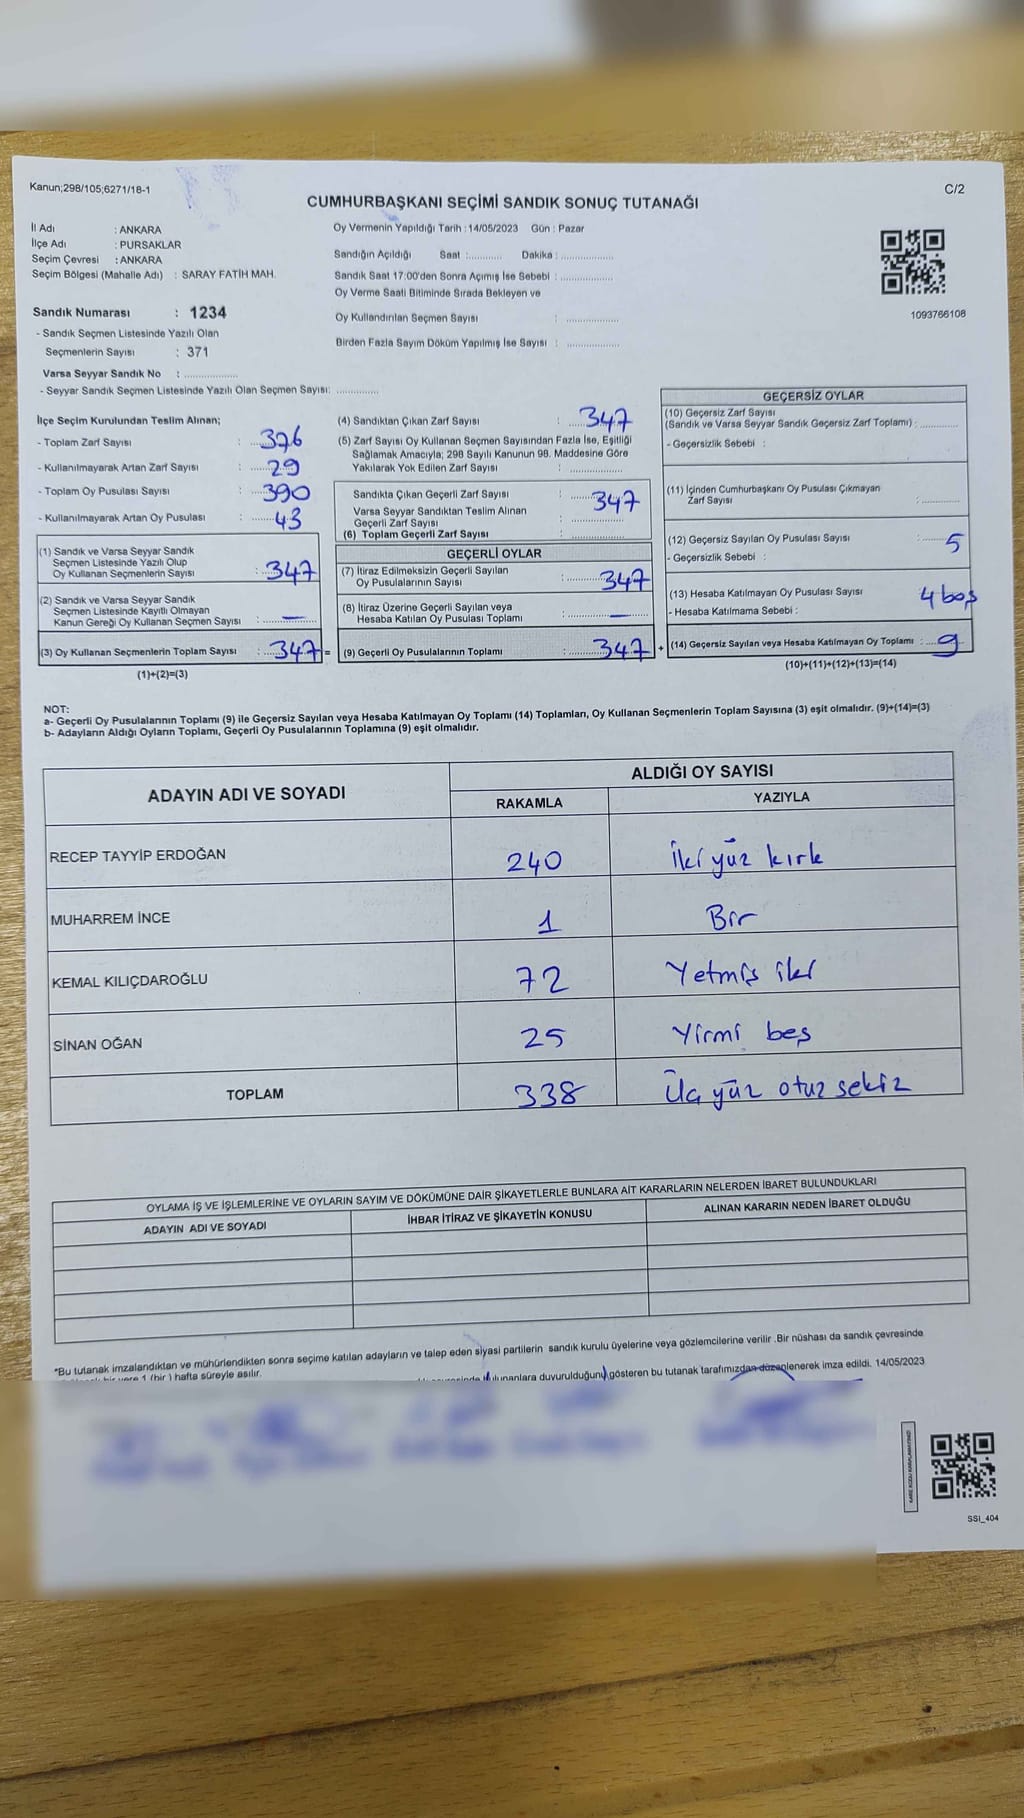 Kanun;298/105;6271/18-1
C/2
CUMHURBAŞKANI SEÇİMİ SANDIK SONUÇ TUTANAĞI
İl Adı : ANKARA
İlçe Adı : PURSAKLAR
Seçim Çevresi : ANKARA
Seçim Bölgesi (Mahalle Adı) : SARAY FATİH MAH.
Sandık Numarası : 1234
- Sandık Seçmen Listesinde Yazılı Olan
Seçmenlerin Sayısı : 371
Varsa Seyyar Sandık No : ..............
- Seyyar Sandık Seçmen Listesinde Yazılı Olan Seçmen Sayısı: ............
Oy Vermenin Yapıldığı Tarih : 14/05/2023 Gün : Pazar
Sandığın Açıldığı Saat :........... Dakika : ..............
Sandık Saat 17:00'den Sonra Açımış İse Sebebi : ..............
Oy Verme Saati Bitiminde Sırada Bekleyen ve
Oy Kullandırılan Seçmen Sayısı : ..............
Birden Fazla Sayım Döküm Yapılmış İse Sayısı : ..............
1093766108
İlçe Seçim Kurulundan Teslim Alınan;
- Toplam Zarf Sayısı : 376
- Kullanılmayarak Artan Zarf Sayısı : 29
- Toplam Oy Pusulası Sayısı : 390
- Kullanılmayarak Artan Oy Pusulası : 43
(1) Sandık ve Varsa Seyyar Sandık
Seçmen Listesinde Yazılı Olup
Oy Kullanan Seçmenlerin Sayısı : 347
(2) Sandık ve Varsa Seyyar Sandık
Seçmen Listesinde Kayıtlı Olmayan
Kanun Gereği Oy Kullanan Seçmen Sayısı : —
(3) Oy Kullanan Seçmenlerin Toplam Sayısı : 347 =
(1)+(2)=(3)
(4) Sandıktan Çıkan Zarf Sayısı : 347
(5) Zarf Sayısı Oy Kullanan Seçmen Sayısından Fazla İse, Eşitliği
Sağlamak Amacıyla; 298 Sayılı Kanunun 98. Maddesine Göre
Yakılarak Yok Edilen Zarf Sayısı : ..............
Sandıkta Çıkan Geçerli Zarf Sayısı : 347
Varsa Seyyar Sandıktan Teslim Alınan
Geçerli Zarf Sayısı : ..............
(6) Toplam Geçerli Zarf Sayısı : ..............
GEÇERLİ OYLAR
(7) İtiraz Edilmeksizin Geçerli Sayılan
Oy Pusulalarının Sayısı : 347
(8) İtiraz Üzerine Geçerli Sayılan veya
Hesaba Katılan Oy Pusulası Toplamı : —
(9) Geçerli Oy Pusulalarının Toplamı : 347 +
GEÇERSİZ OYLAR
(10) Geçersiz Zarf Sayısı
(Sandık ve Varsa Seyyar Sandık Geçersiz Zarf Toplamı) : ..........
- Geçersizlik Sebebi :
(11) İçinden Cumhurbaşkanı Oy Pusulası Çıkmayan
Zarf Sayısı : ..........
(12) Geçersiz Sayılan Oy Pusulası Sayısı : 5
- Geçersizlik Sebebi :
(13) Hesaba Katılmayan Oy Pusulası Sayısı 4 boş
- Hesaba Katılmama Sebebi :
(14) Geçersiz Sayılan veya Hesaba Katılmayan Oy Toplamı : 9
(10)+(11)+(12)+(13)=(14)
NOT:
a- Geçerli Oy Pusulalarının Toplamı (9) ile Geçersiz Sayılan veya Hesaba Katılmayan Oy Toplamı (14) Toplamları, Oy Kullanan Seçmenlerin Toplam Sayısına (3) eşit olmalıdır. (9)+(14)=(3)
b- Adayların Aldığı Oyların Toplamı, Geçerli Oy Pusulalarının Toplamına (9) eşit olmalıdır.
ADAYIN ADI VE SOYADI ALDIĞI OY SAYISI
RAKAMLA YAZIYLA
RECEP TAYYİP ERDOĞAN 240 İki yüz kırk
MUHARREM İNCE 1 Bir
KEMAL KILIÇDAROĞLU 72 Yetmiş iki
SİNAN OĞAN 25 Yirmi beş
TOPLAM 338 Üç yüz otuz sekiz
OYLAMA İŞ VE İŞLEMLERİNE VE OYLARIN SAYIM VE DÖKÜMÜNE DAİR ŞİKAYETLERLE BUNLARA AİT KARARLARIN NELERDEN İBARET BULUNDUKLARI
ADAYIN ADI VE SOYADI İHBAR İTİRAZ VE ŞİKAYETİN KONUSU ALINAN KARARIN NEDEN İBARET OLDUĞU
*Bu tutanak imzalandıktan ve mühürlendikten sonra seçime katılan adayların ve talep eden siyasi partilerin sandık kurulu üyelerine veya gözlemcilerine verilir .Bir nüshası da sandık çevresinde
bir yere 1 (bir ) hafta süreyle asılır.
duyurulduğunu gösteren bu tutanak tarafımızdan düzenlenerek imza edildi. 14/05/2023
SSI_404